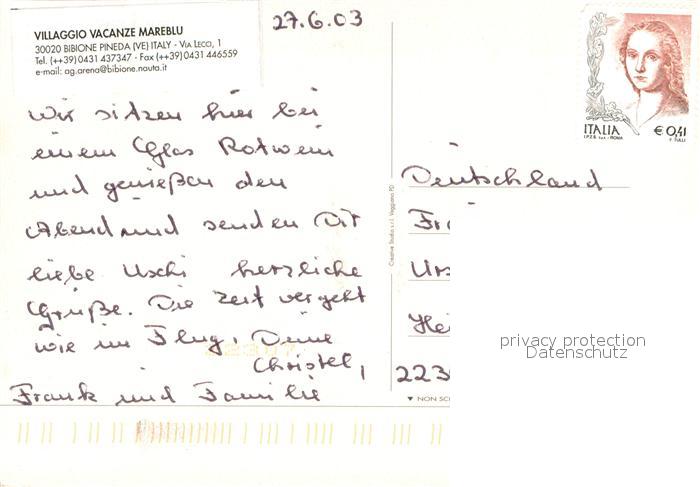 VILLAGGIO VACANZE MAREBLU
30020 BIBIONE PINEDA (VE) ITALY - VIA LECO, 1
Tel. (++39) 0431 437347 - Fax (++39) 0431 446559
e-mail: ag.arena@bibione.nauta.it
27.6.03
Wir sitzen hier bei
einem Glas Rotwein
und genießen den
Abend und senden Dir
liebe Uschi herzliche
Grüße. Die Zeit vergeht
wie im Flug, Deine
Christel,
Frank und Familie
Creative Studio s.r.l. Veggiano PD
ITALIA
€ 0,41
I.P.Z.S. S.p.A. - ROMA
F. TULLI
Deutschland
Fr
Urs
Hei
223
NON SC
privacy protection
Datenschutz